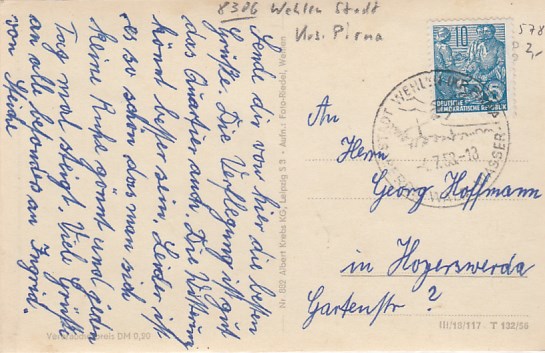 8306 Wehlen Stadt
Krs. Pirna
578
2,-
Sende dir von hier die besten
Grüße. Die Verpflegung ist gut
das Quartier auch. Die Witterung
könnt besser sein. Leider ist
es so schön das man sich
keine Ruhe gönnt und jeden
Tag mal steigt. Viel Grüße
an alle besonders an Ingrid.
von
Verbraucherpreis DM 0,20
Nr. 802 Albert Krebs KG, Leipzig S 3 - Aufn.: Foto-Riedel, Wehlen
10
DEUTSCHE
DEMOKRATISCHE REPUBLIK
STADT WEHLEN
WALD WASSER
An
Herrn
Georg Hoffmann
in Hoyerswerda
Gartenstr ?
III/18/117 - T 132/56